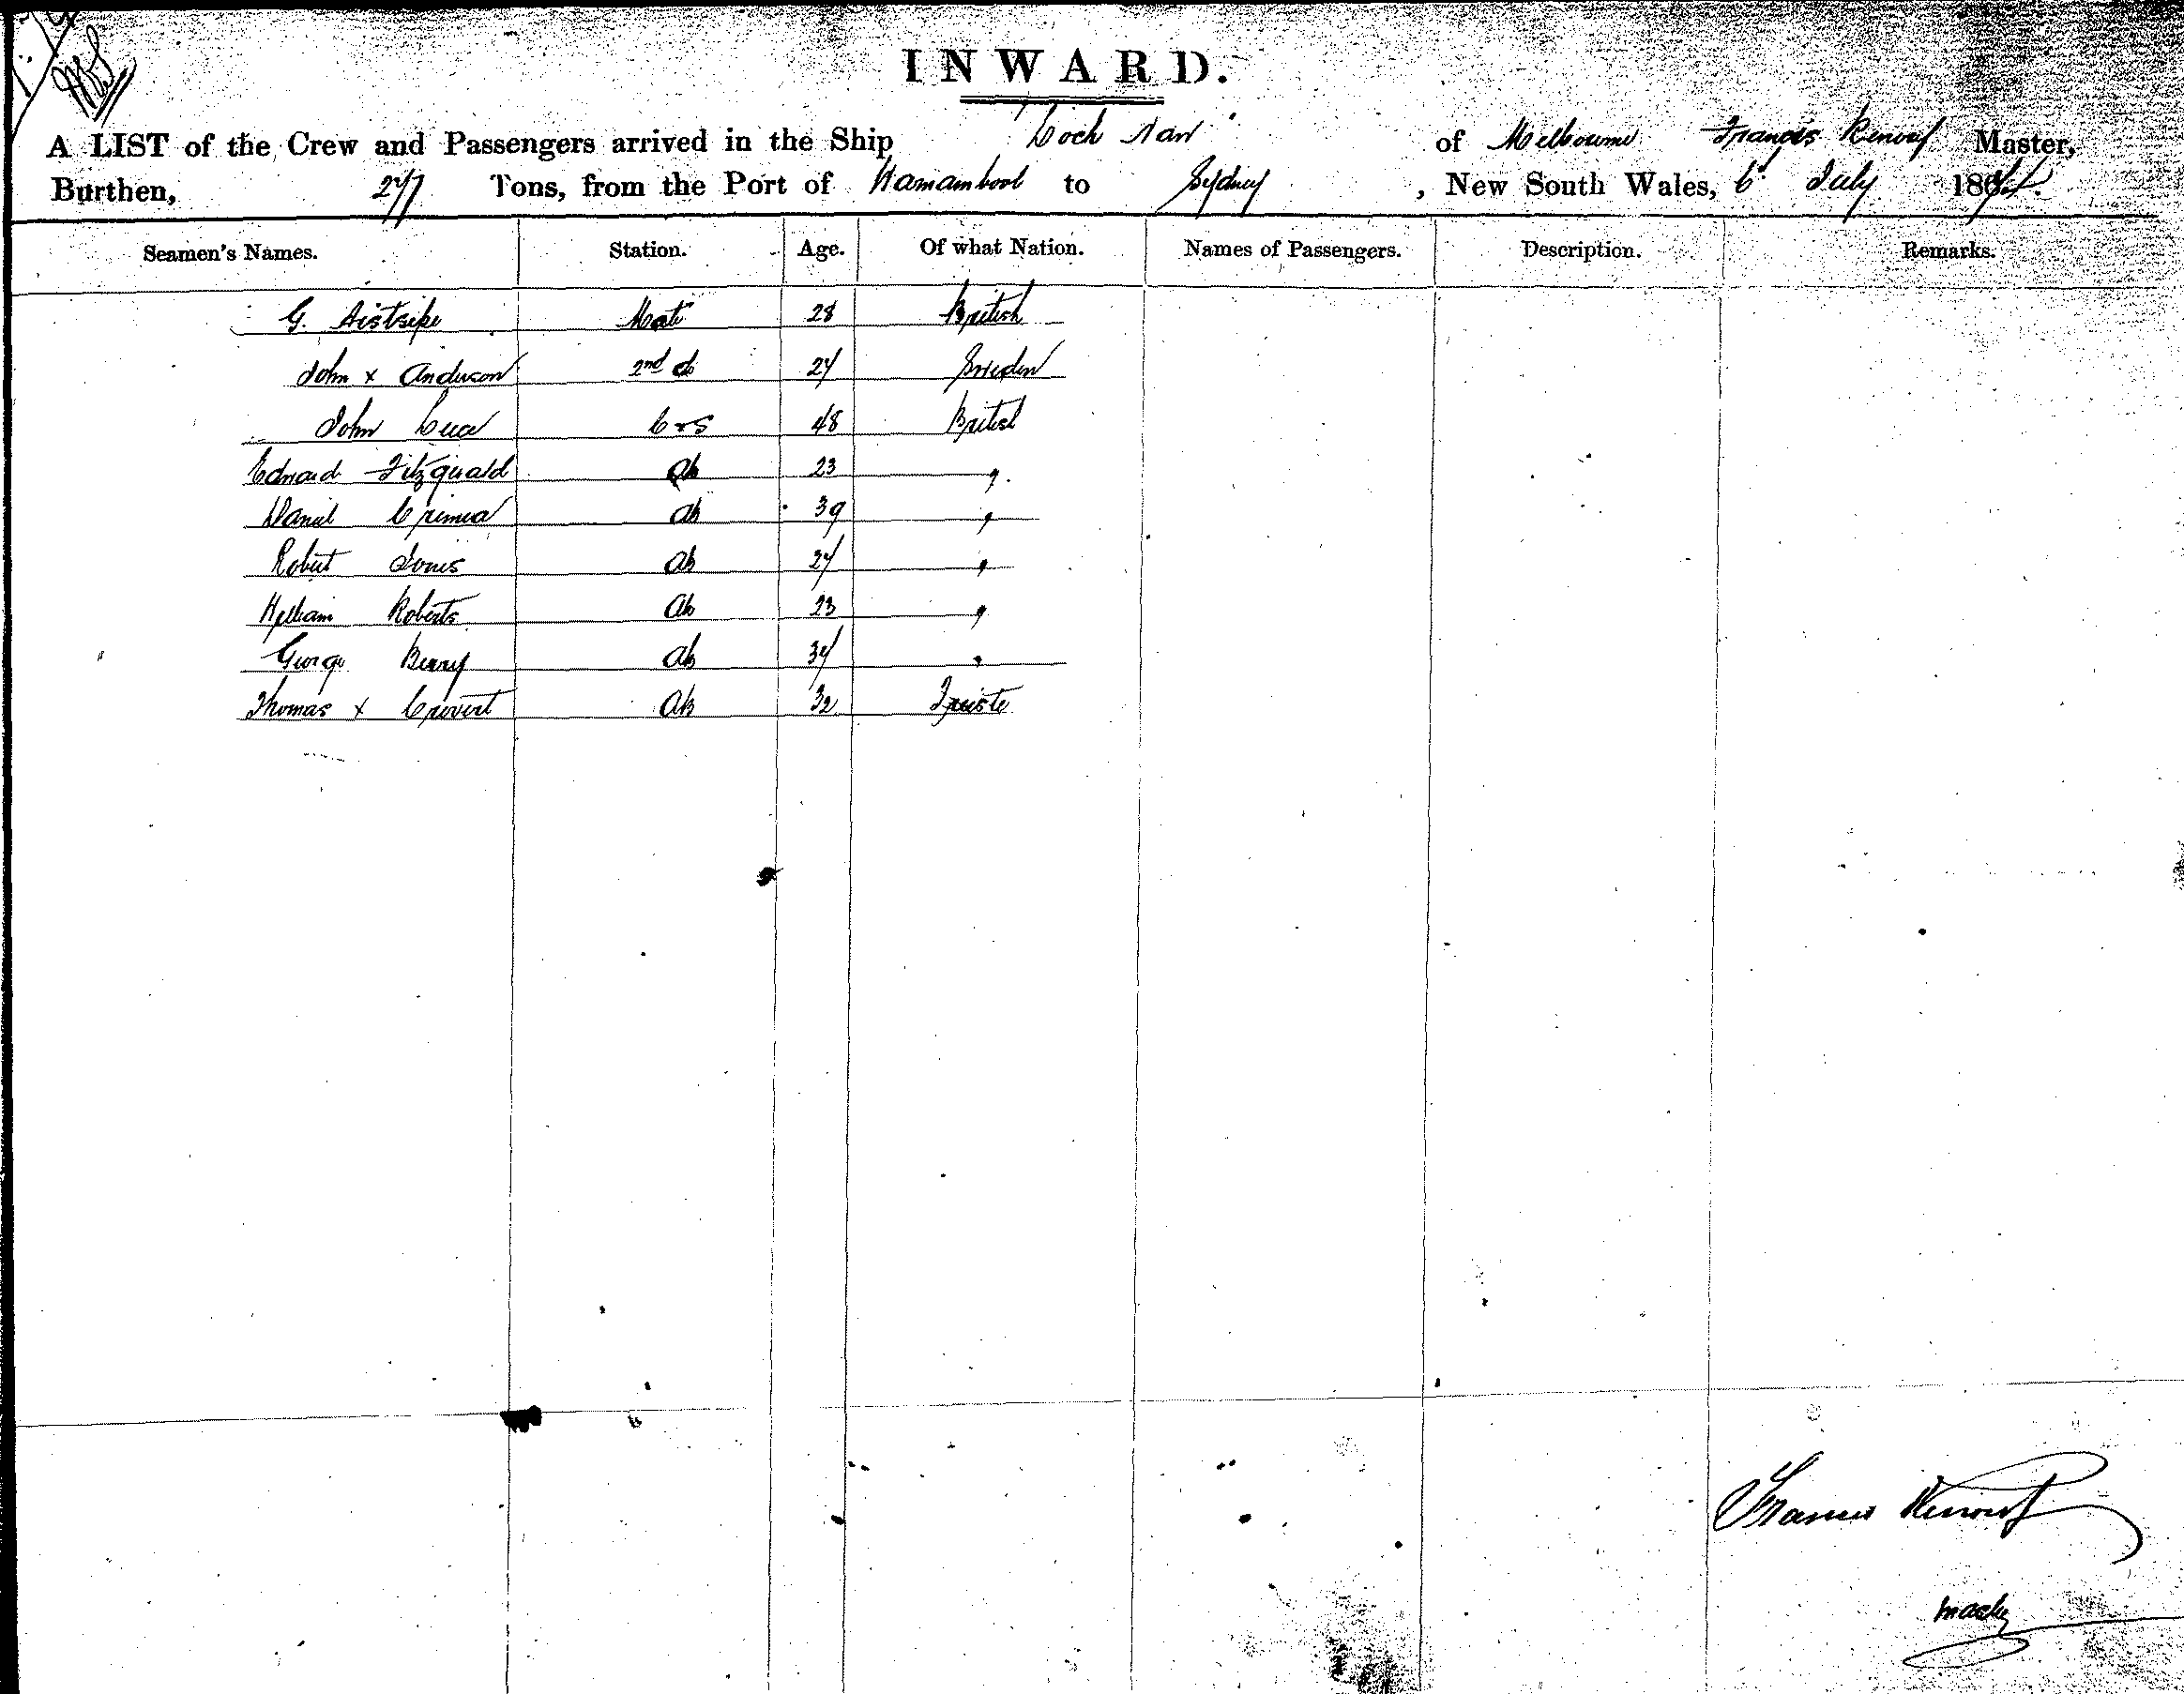 INWARD.
A LIST of the Crew and Passengers arrived in the Ship "Loch Nar" of Melbourne Francis Renouf Master,
Burthen, 277 Tons, from the Port of Warnambool to Sydney, New South Wales, 6th July 188
Seamen's Names. Station. Age. Of what Nation. Names of Passengers. Description. Remarks.
G. Mate 28 British
John x Anderson 2nd do 27 Sweden
John C&S 48 British
Edward Fitzgerald Ab 23 "
Daniel Ab 39 "
Robert Jones Ab 27 "
William Roberts Ab 23 "
George Berry Ab 34 "
Thomas x Ab 32 Trieste
Francis Renouf
Master